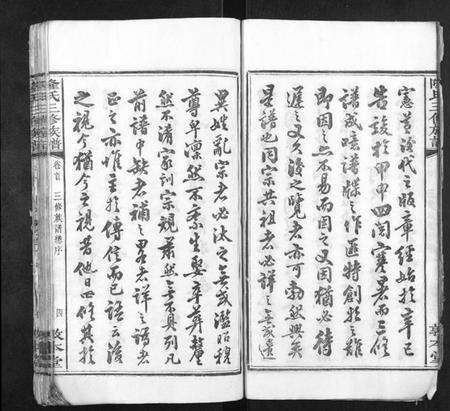 憲等後代之賬章經始於辛巳
告竣於甲申四閱寒暑而三修
譜成嗟譜牒之作匪特創於之難
即因之亦不易而因之又因猶必待
遲之又久後之覽者亦可勃然興矣
是譜也同宗共祖者必詳之無或遺
異姓亂宗者必汰之無或濫貽稷
尊卑凜然不紊生娶卒葬釐
然不淆家訓宗規肅然無不具列凡
前譜中缺者補之畧者詳之譜者
正之亦惟主於傳信而已語云後
之視今猶今之視昔他日四修其於
氏三修族譜
卷首
三修族譜總序
四
敦本堂